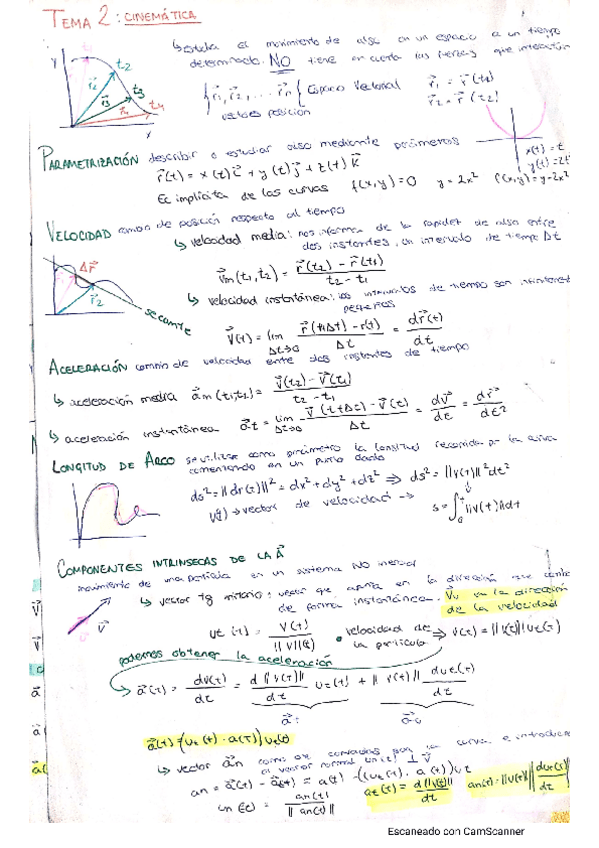 TEMA 2: CINEMÁTICA
↳ Estudia el movimiento de algo en un espacio a un tiempo
determinado. NO tiene en cuenta las fuerzas que interactúan
y r⃗₂ t₂ r⃗₃ t₃ r₄ t₄ x
{r⃗₁, r⃗₂, ... r⃗n { Espacio Vectorial
vectores posición
r⃗₁ = r⃗(t₁)
r⃗₂ = r⃗(t₂)
PARAMETRIZACIÓN describir o estudiar algo mediante parámetros
r⃗(t) = x(t)i⃗ + y(t)j⃗ + z(t)k⃗
x(t) = t
Ec implícita de las curvas f(x,y)=0 y=2x² f(x,y)=y-2x²
VELOCIDAD cambio de posición respecto al tiempo
↳ velocidad media: nos informa de la rapidez de algo entre
dos instantes, un intervalo de tiempo Δt
Δr⃗ r⃗₂ secante
v⃗m(t₁,t₂) = r⃗(t₂) - r⃗(t₁) / t₂ - t₁
↳ velocidad instantánea: los intervalos de tiempo son
pequeños
v⃗(t) = lim Δt→0 r⃗(t+Δt) - r(t) / Δt = dr⃗(t) / dt
ACELERACIÓN cambio de velocidad entre dos instantes de tiempo
↳ aceleración media a⃗m(t₁,t₂) = v⃗(t₂) - v⃗(t₁) / t₂ - t₁
↳ aceleración instantánea a⃗t = lim Δt→0 v⃗(t+Δt) - v⃗(t) / Δt = dv⃗ / dt = dr⃗ / dt²
LONGITUD DE ARCO se utiliza como parámetro la longitud recorrida por la curva
comenzando en un punto dado
ds² = ||dr(t)||² = dx² + dy² + dz² ⇒ ds² = ||v(t)||² dt²
v(t) → vector de velocidad → s = ∫ ||v(t)||dt
COMPONENTES INTRINSECAS DE LA A⃗
movimiento de una partícula en un sistema NO inercial
↳ vector tg unitario: vector que apunta en la dirección que
de forma instantánea. Va en la dirección
de la velocidad
v⃗
ut(t) = v(t) / ||v(t)|| • velocidad de la partícula → v(t) = ||v(t)|| ut(t)
podemos obtener la aceleración
↳ a⃗(t) = dv(t) / dt = d||v(t)|| / dt ut(t) + ||v(t)|| dut(t) / dt
a⃗(t) = (ut(t) · a(t)) ut(t)
↳ vector a⃗n
el vector normal un(t) ⊥ v⃗
an = a⃗(t) - a⃗t(t) = a(t) - ((ut(t) · a(t)) ut
at(t) = d||v(t)|| / dt
an(t) = ||v(t)|| ||dut(t) / dt||
un(t) = an(t) / ||an(t)||
Escaneado con CamScanner